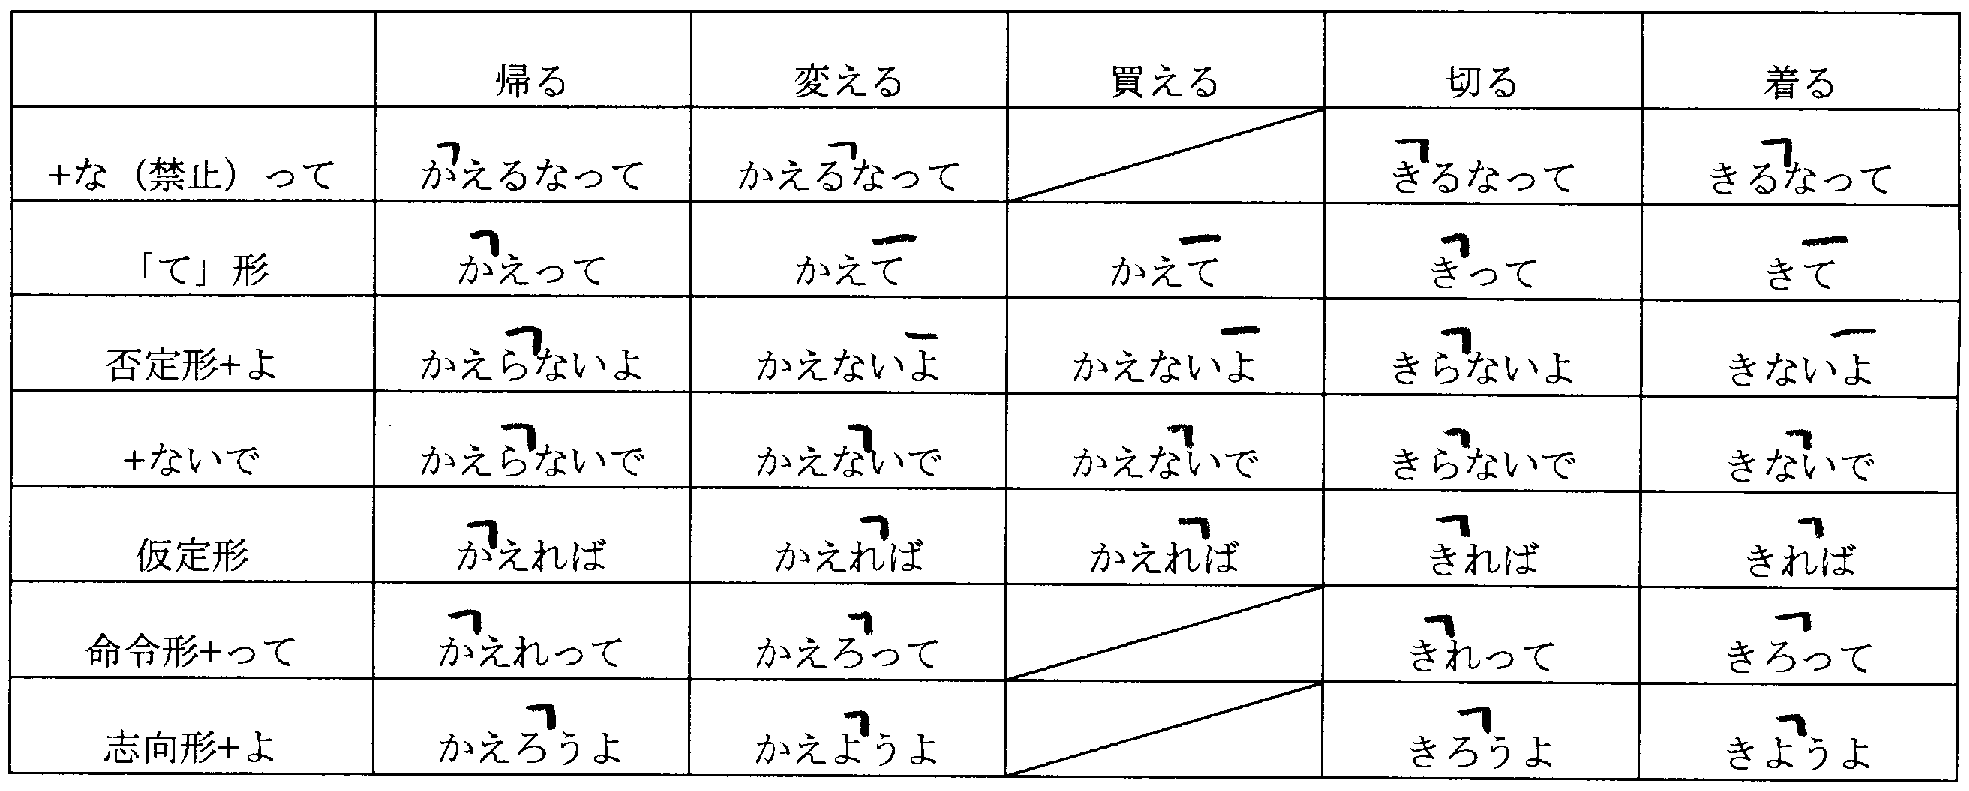 帰る 変える 買える 切る 着る
+な（禁止）って かえるなって かえるなって きるなって きるなって
「て」形 かえって かえて かえて きって きて
否定形+よ かえらないよ かえないよ かえないよ きらないよ きないよ
+ないで かえらないで かえないで かえないで きらないで きないで
仮定形 かえれば かえれば かえれば きれば きれば
命令形+って かえれって かえろって きれって きろって
志向形+よ かえろうよ かえようよ きろうよ きようよ